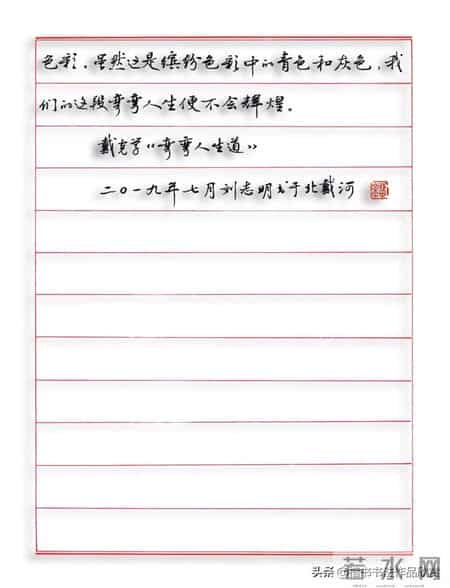 色彩。虽然这是缤纷色彩中的青色和灰色,我
们的这段弯弯人生便不会辉煌。
戴克学《弯弯人生道》
二〇一九年七月刘志明书于北戴河
若水网
头条@书书法作品